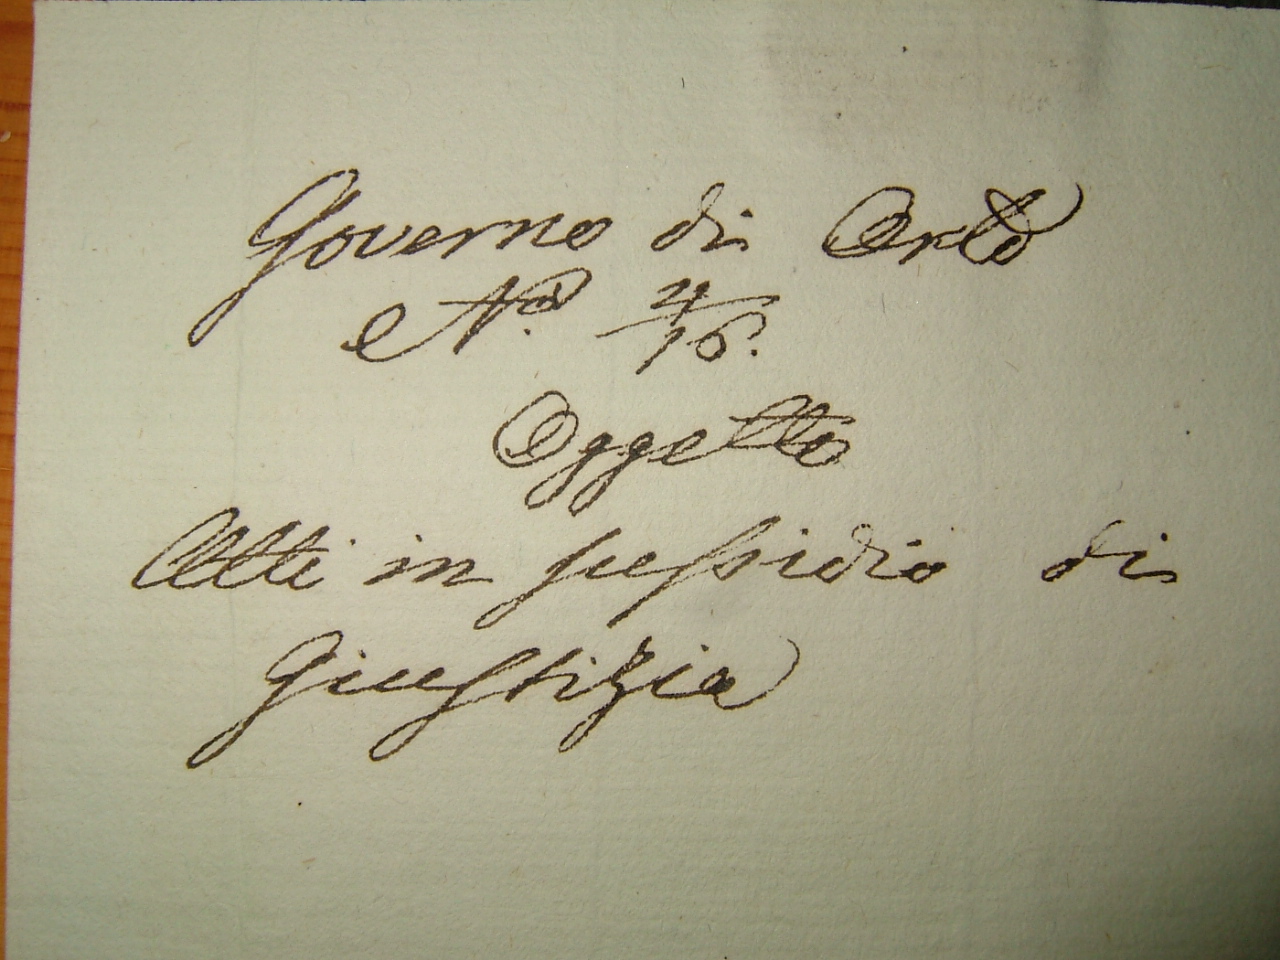 Governo di Orte
N.o 4/16.
Oggetto
Atti in sussidio di
Giustizia